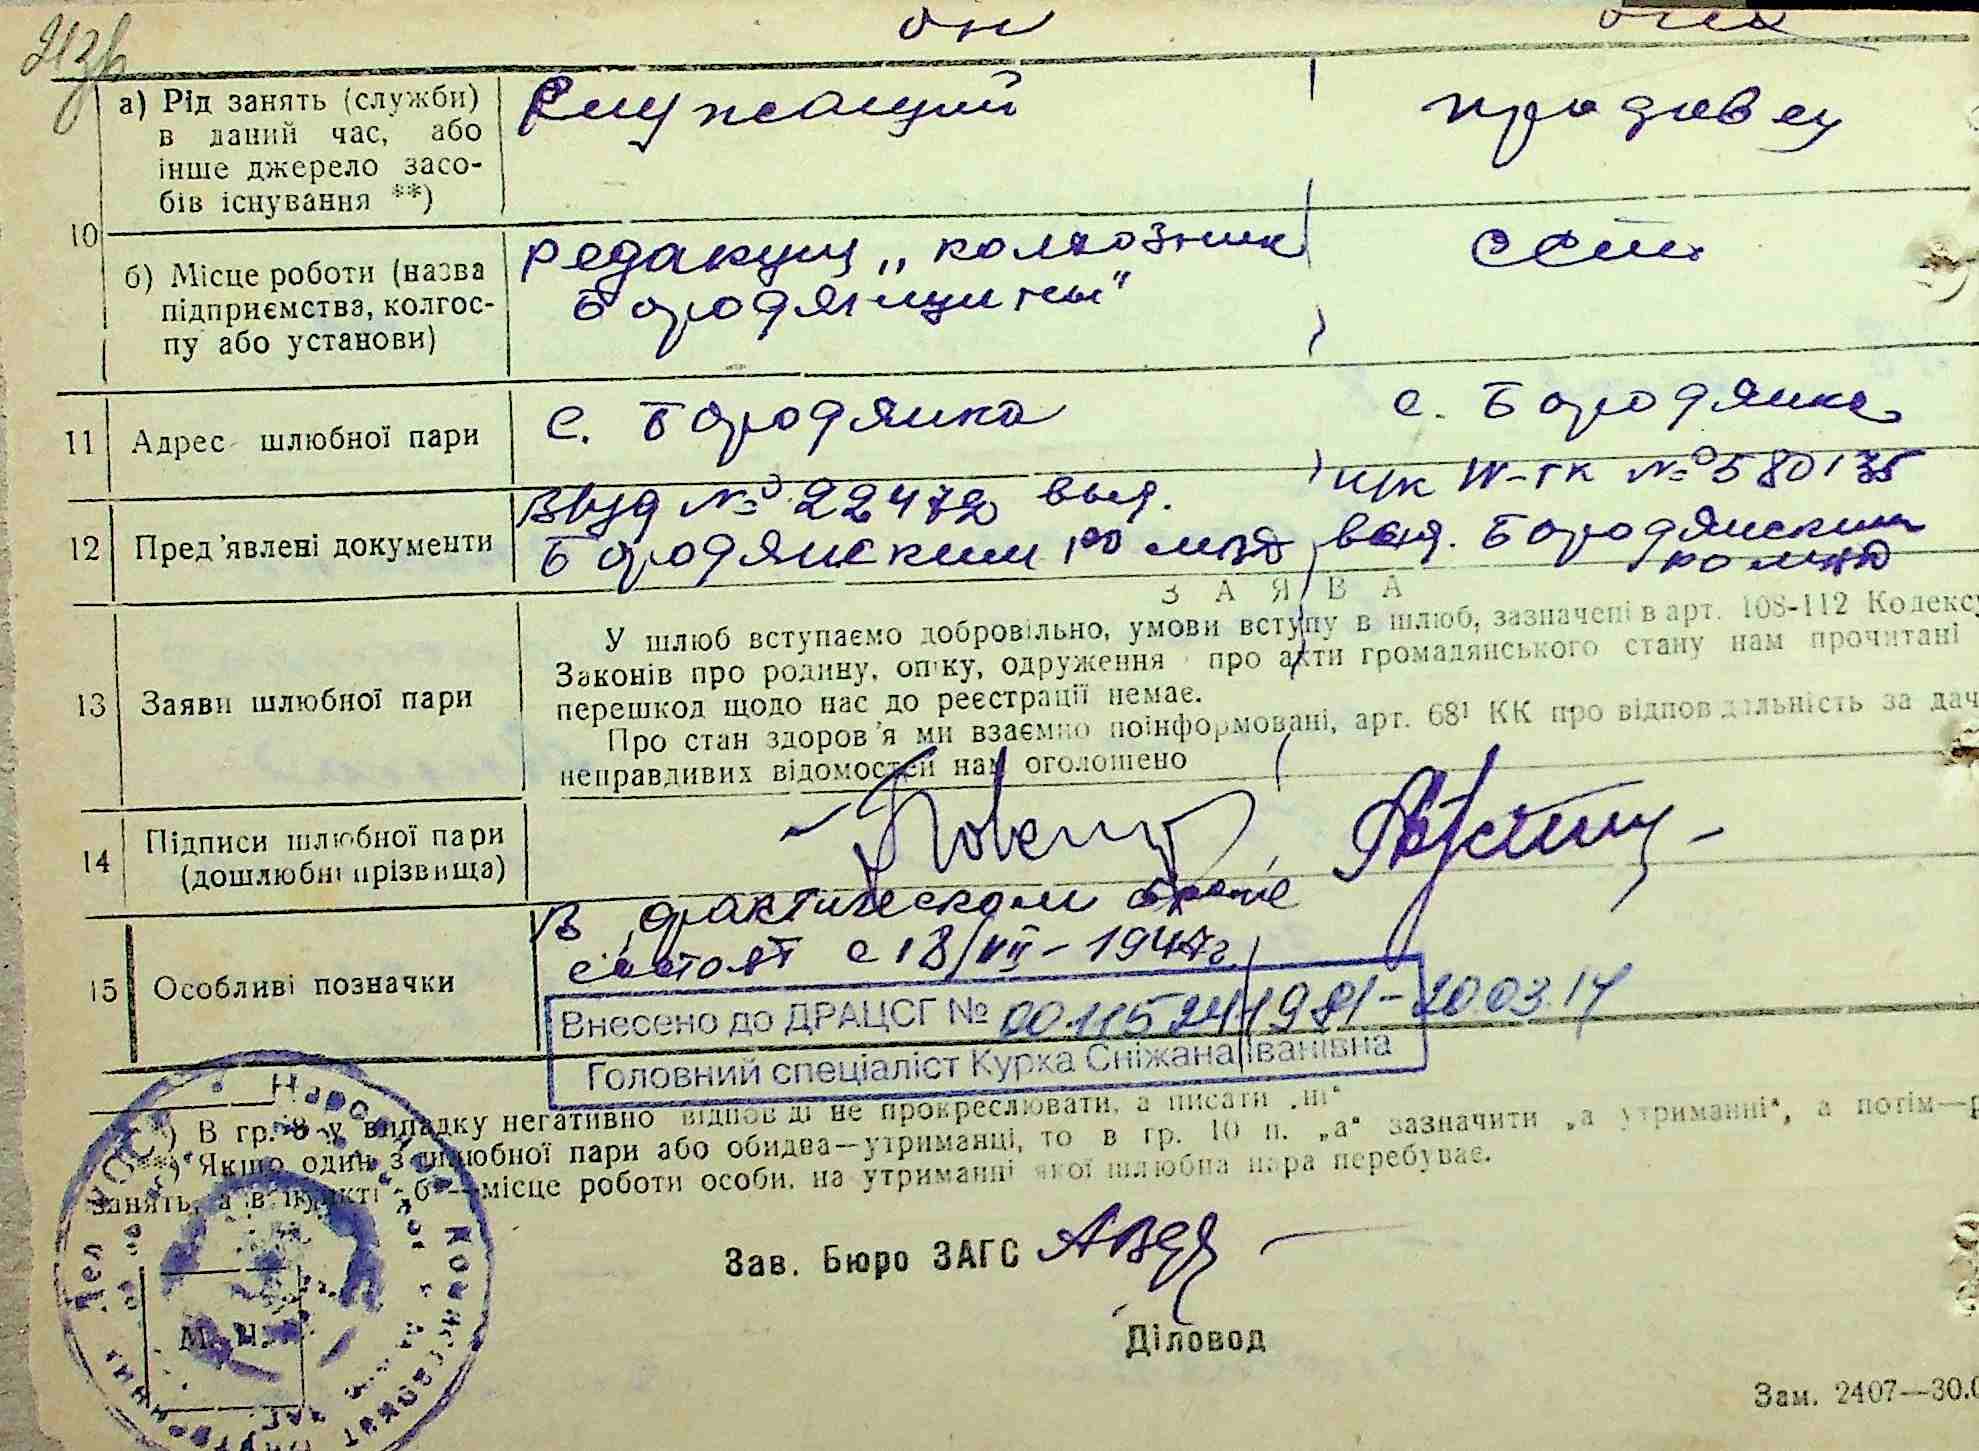 он она
а) Рід занять (служби)
в даний час, або
інше джерело засо-
бів існування **)
Служащий продавец
10
б) Місце роботи (назва
підприємства, колгос-
пу або установи)
редакция „колхозник
Бородянщины"
ССТ
11 Адрес шлюбної пари
с. Бородянка с. Бородянка
12 Пред'явлені документи
№ 22472 выд.
Бородянским РО МВД
п/к IV-ГК № 580135
выд. Бородянским
РО МВД
ЗАЯВА
13 Заяви шлюбної пари
У шлюб вступаємо добровільно, умови вступу в шлюб, зазначені в арт. 108-112 Кодексу
Законів про родину, опіку, одруження про акти громадянського стану нам прочитані
перешкод щодо нас до реєстрації немає.
Про стан здоров'я ми взаємно поінформовані, арт. 68¹ КК про відповідальність за дач
неправдивих відомостей нам оголошено
14 Підписи шлюбної пари
(дошлюбні прізвища)
15 Особливі позначки
В фактическом браке
состоят с 18/VII-1947г.
Внесено до ДРАЦСГ № 00115241981-20.03.17
Головний спеціаліст Курка Сніжана Іванівна
) В гр. 8 у випадку негативно відповіді не прокреслювати, а писати „ні"
**) Якщо один з шлюбної пари або обидва—утриманці, то в гр. 10 п. „а" зазначити „а утриманні", а потім—р
занять, а в пункті „б"—місце роботи особи, на утриманні якої шлюбна пара перебуває.
Зав. Бюро ЗАГС
М. П.
Діловод
Зам. 2407—30.0